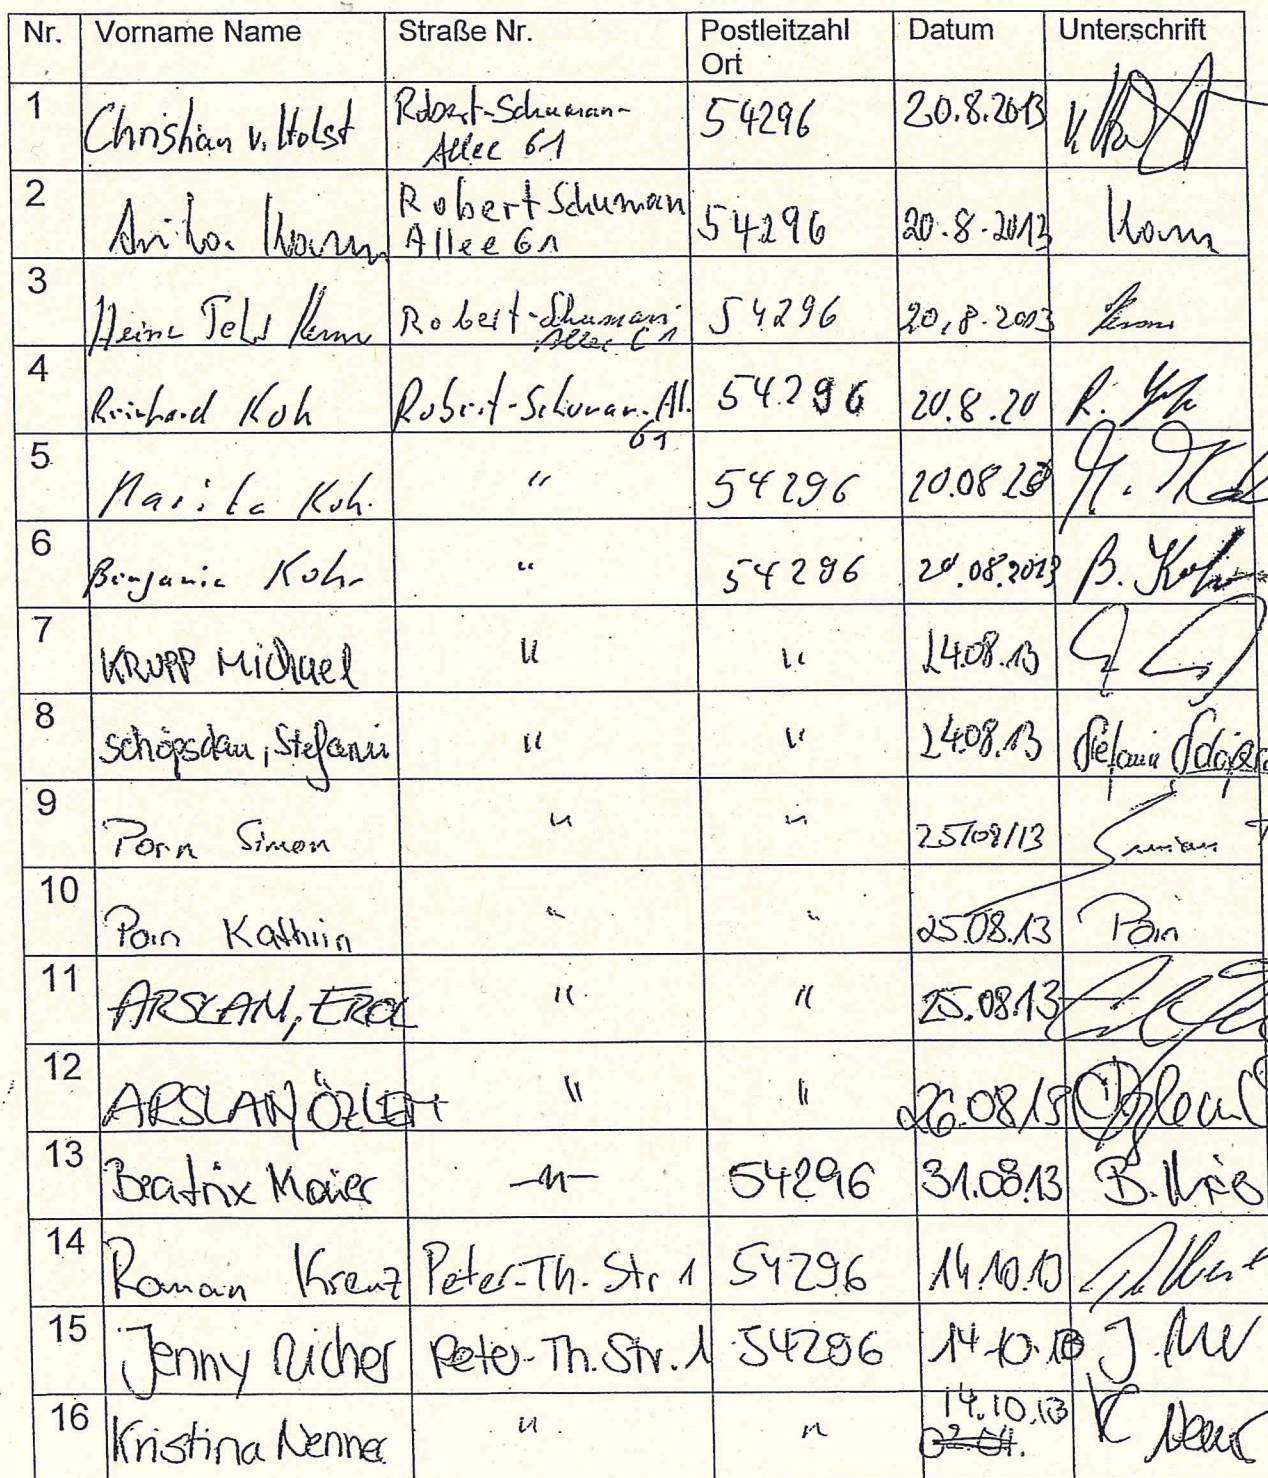 Nr. Vorname Name Straße Nr. Postleitzahl Datum Unterschrift
Ort
1 Christian v. Holst Robert-Schuman- 54296 20.8.2013
Allee 61
2 Robert Schuman 54296 20.8.2013
Allee 61
3 Robert-Schuman 54296 20.8.2013
Allee 61
4 Reinhard Koh Robert-Schuman-Al. 54296 20.8.20 R.
61
5 Marita Koh. " 54296 20.08.20 M.
6 Benjamin Koh " 54296 20.08.2013 B. Koh
7 KRUPP Michael " " 24.08.13
8 Schöpsdau, Stefanie " " 24.08.13 Stefanie
9 Porn Simon " " 25/08/13 Simon
10 Porn Kathrin " " 25.08.13 Porn
11 ARSLAN, EROL " " 25.08.13
12 ARSLAN, ÖZLEM " " 26.08.13 Özlem
13 Beatrix Maier -"- 54296 31.08.13 B.
14 Roman Krenz Peter-Th. Str 1 54296 14.10.13
15 Jenny Richer Peter-Th. Str. 1 54296 14.10.13 J.
16 Kristina Nenner " " 14.10.13 K